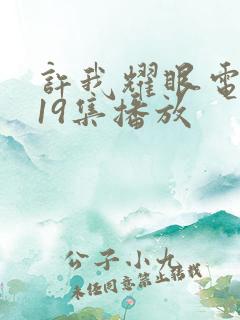 許我耀眼電
19集播放
公子小九
未经同意禁止转载